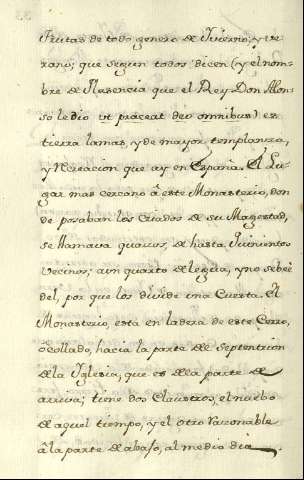 Frutas de todo genero de Yuierno, y ve
rano; que segun todos dicen (y el nom
bre de Plasencia que el Rey Don Alon
so le dio ut placeat deo omnibus) es
tierra la mas, y de mayor templanza,
y Recreacion que ay en España. El Lu
gar mas cercano â este Monasterio, don
de posaban los Criados de su Magestad,
se llamava quacos, de hasta Quinientos
vecinos; a un quarto de legua, y no se beê
del, por que los divide una Cuesta. El
Monasterio, està en ladera de este Cerro,
ô Collado, hacia la parte de Septentrion
de la Yglesia, que es de la parte de
arriva; tiene dos Claustros, el nuebo
de aquel tiempo, y el otro razonable
â la parte de abajo, al medio dia